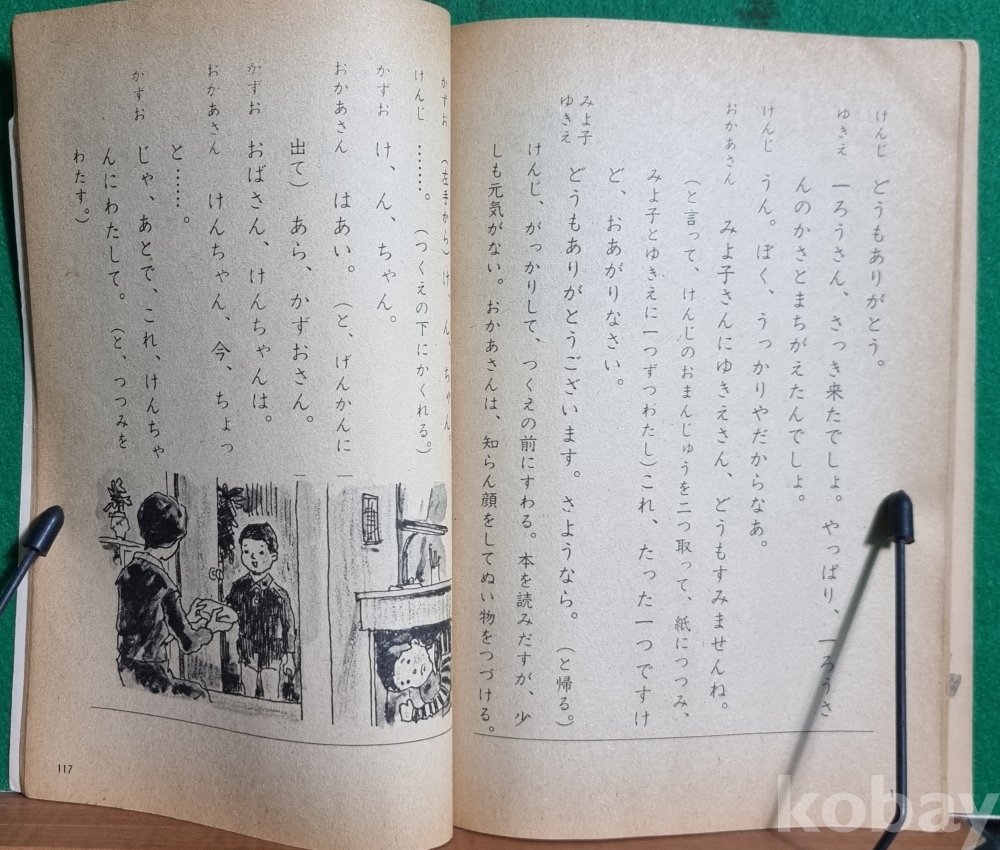 けんじ　どうもありがとう。
ゆきえ　一ろうさん、さっき来たでしょ。やっぱり、一ろうさ
んのかさとまちがえたんでしょ。
けんじ　うん。ぼく、うっかりやだからなあ。
おかあさん　みよ子さんにゆきえさん、どうもすみませんね。
（と言って、けんじのおまんじゅうを二つ取って、紙につつみ、
みよ子とゆきえに一つずつわたし）これ、たった一つですけ
ど、おあがりなさい。
みよ子
ゆきえ　どうもありがとうございます。さようなら。（と帰る。）
けんじ、がっかりして、つくえの前にすわる。本を読みだすが、少
しも元気がない。おかあさんは、知らん顔をしてぬい物をつづける。
かずお　（左手から）け、ん、ちゃん。
けんじ　……。（つくえの下にかくれる。）
かずお　け、ん、ちゃん。
おかあさん　はあい。（と、げんかんに
出て）あら、かずおさん。
かずお　おばさん、けんちゃんは。
おかあさん　けんちゃん、今、ちょっ
と……。
かずお　じゃ、あとで、これ、けんちゃ
んにわたして。（と、つつみを
わたす。）
117
kobay